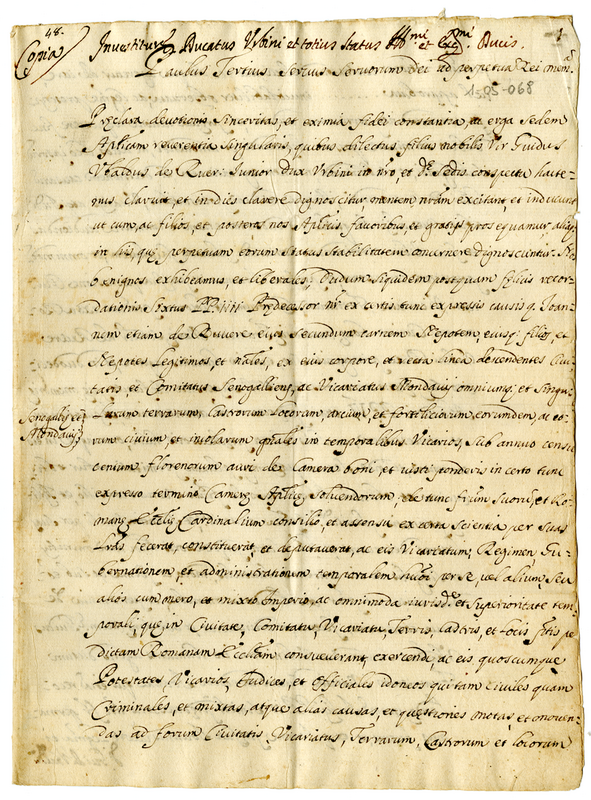 48.
Copia
1
Investitura Ducatus Urbini et totius Status Ill.mi et Ex.mi Ducis.
Paulus Tertius Servus Servorum Dei ad perpetuã Rei mem.
1585-068
Preclara devotionis sinceritas, et eximia fidei constantia, ac erga sedem
Aplicam reverentia singularis, quibus dilectus filius nobilis Vir Guidus
Ubaldus de Ruere Iunior Dux Urbini in nro, et Sedis conspectu hacte-
nus claruit et in dies clarere dignoscitur mentem nram excitant, et inducunt
ut eum, ac filios, et posteros nos Aplicis favoribus et gratijs prosequamur, aliasq
in his, quę perpetuam eorum Status Stabilitatem concernere dignoscuntur
benignos exhibeamus, et liberales. Dudum siquidem postquam fęlicis recor-
dationis Sixtus PP. IIII Prędecessor nr ex certis tunc expressis causis q. Ioan-
nem etiam de Ruvere eius secundum carnem Nepotem, eiusq; filios, et
Nepotes legitimos et nales, ex eius corpore, et recta linea descendentes Civi-
tatis et Comitatus Senogallien, ac Vicariatus Mondavij omniumq; et singu-
Senogallię et
Mondavij
larum terrarum, Castrorum Locorum, arcium, et fortaliciorum eorumdem, ac eo-
rum civium, et incolarum gnales in temporalibus Vicarios, sub annuo censu
centum florenorum auri de Camera boni, et iusti ponderis in certo tunc
expresso termino Camerę Aplicę solvendorum, de tunc frum suorũ, et Ro-
manę Ecclię Cardinalium consilio, et assensu ex certa scientia per suas
Lras fecerat, constituerat, et deputaverat, ac eis Vicariatum, Regimen Gu-
bernationem, et administrationem temporalem huiõi per se, vel alium, seu
alios cum mero, et mixto Imperio, ac omnimoda iurisdne et superioritate tem-
porali, quę in Civitate, Comitatu, Vicariatu, Terris, Castris, et Locis ptis pe
dictam Romanam Ecclam consueverant, exercendi, ac eis quoscumque
Potestates Vicarios, Iudices, et Officiales idoneos qui tam Civiles quam
Criminales, et mixtas, atque alias causas, et quęstiones motas, et moven-
das ad forum Civitatis Vicariatus, Terrarum, Castrorum et locorum